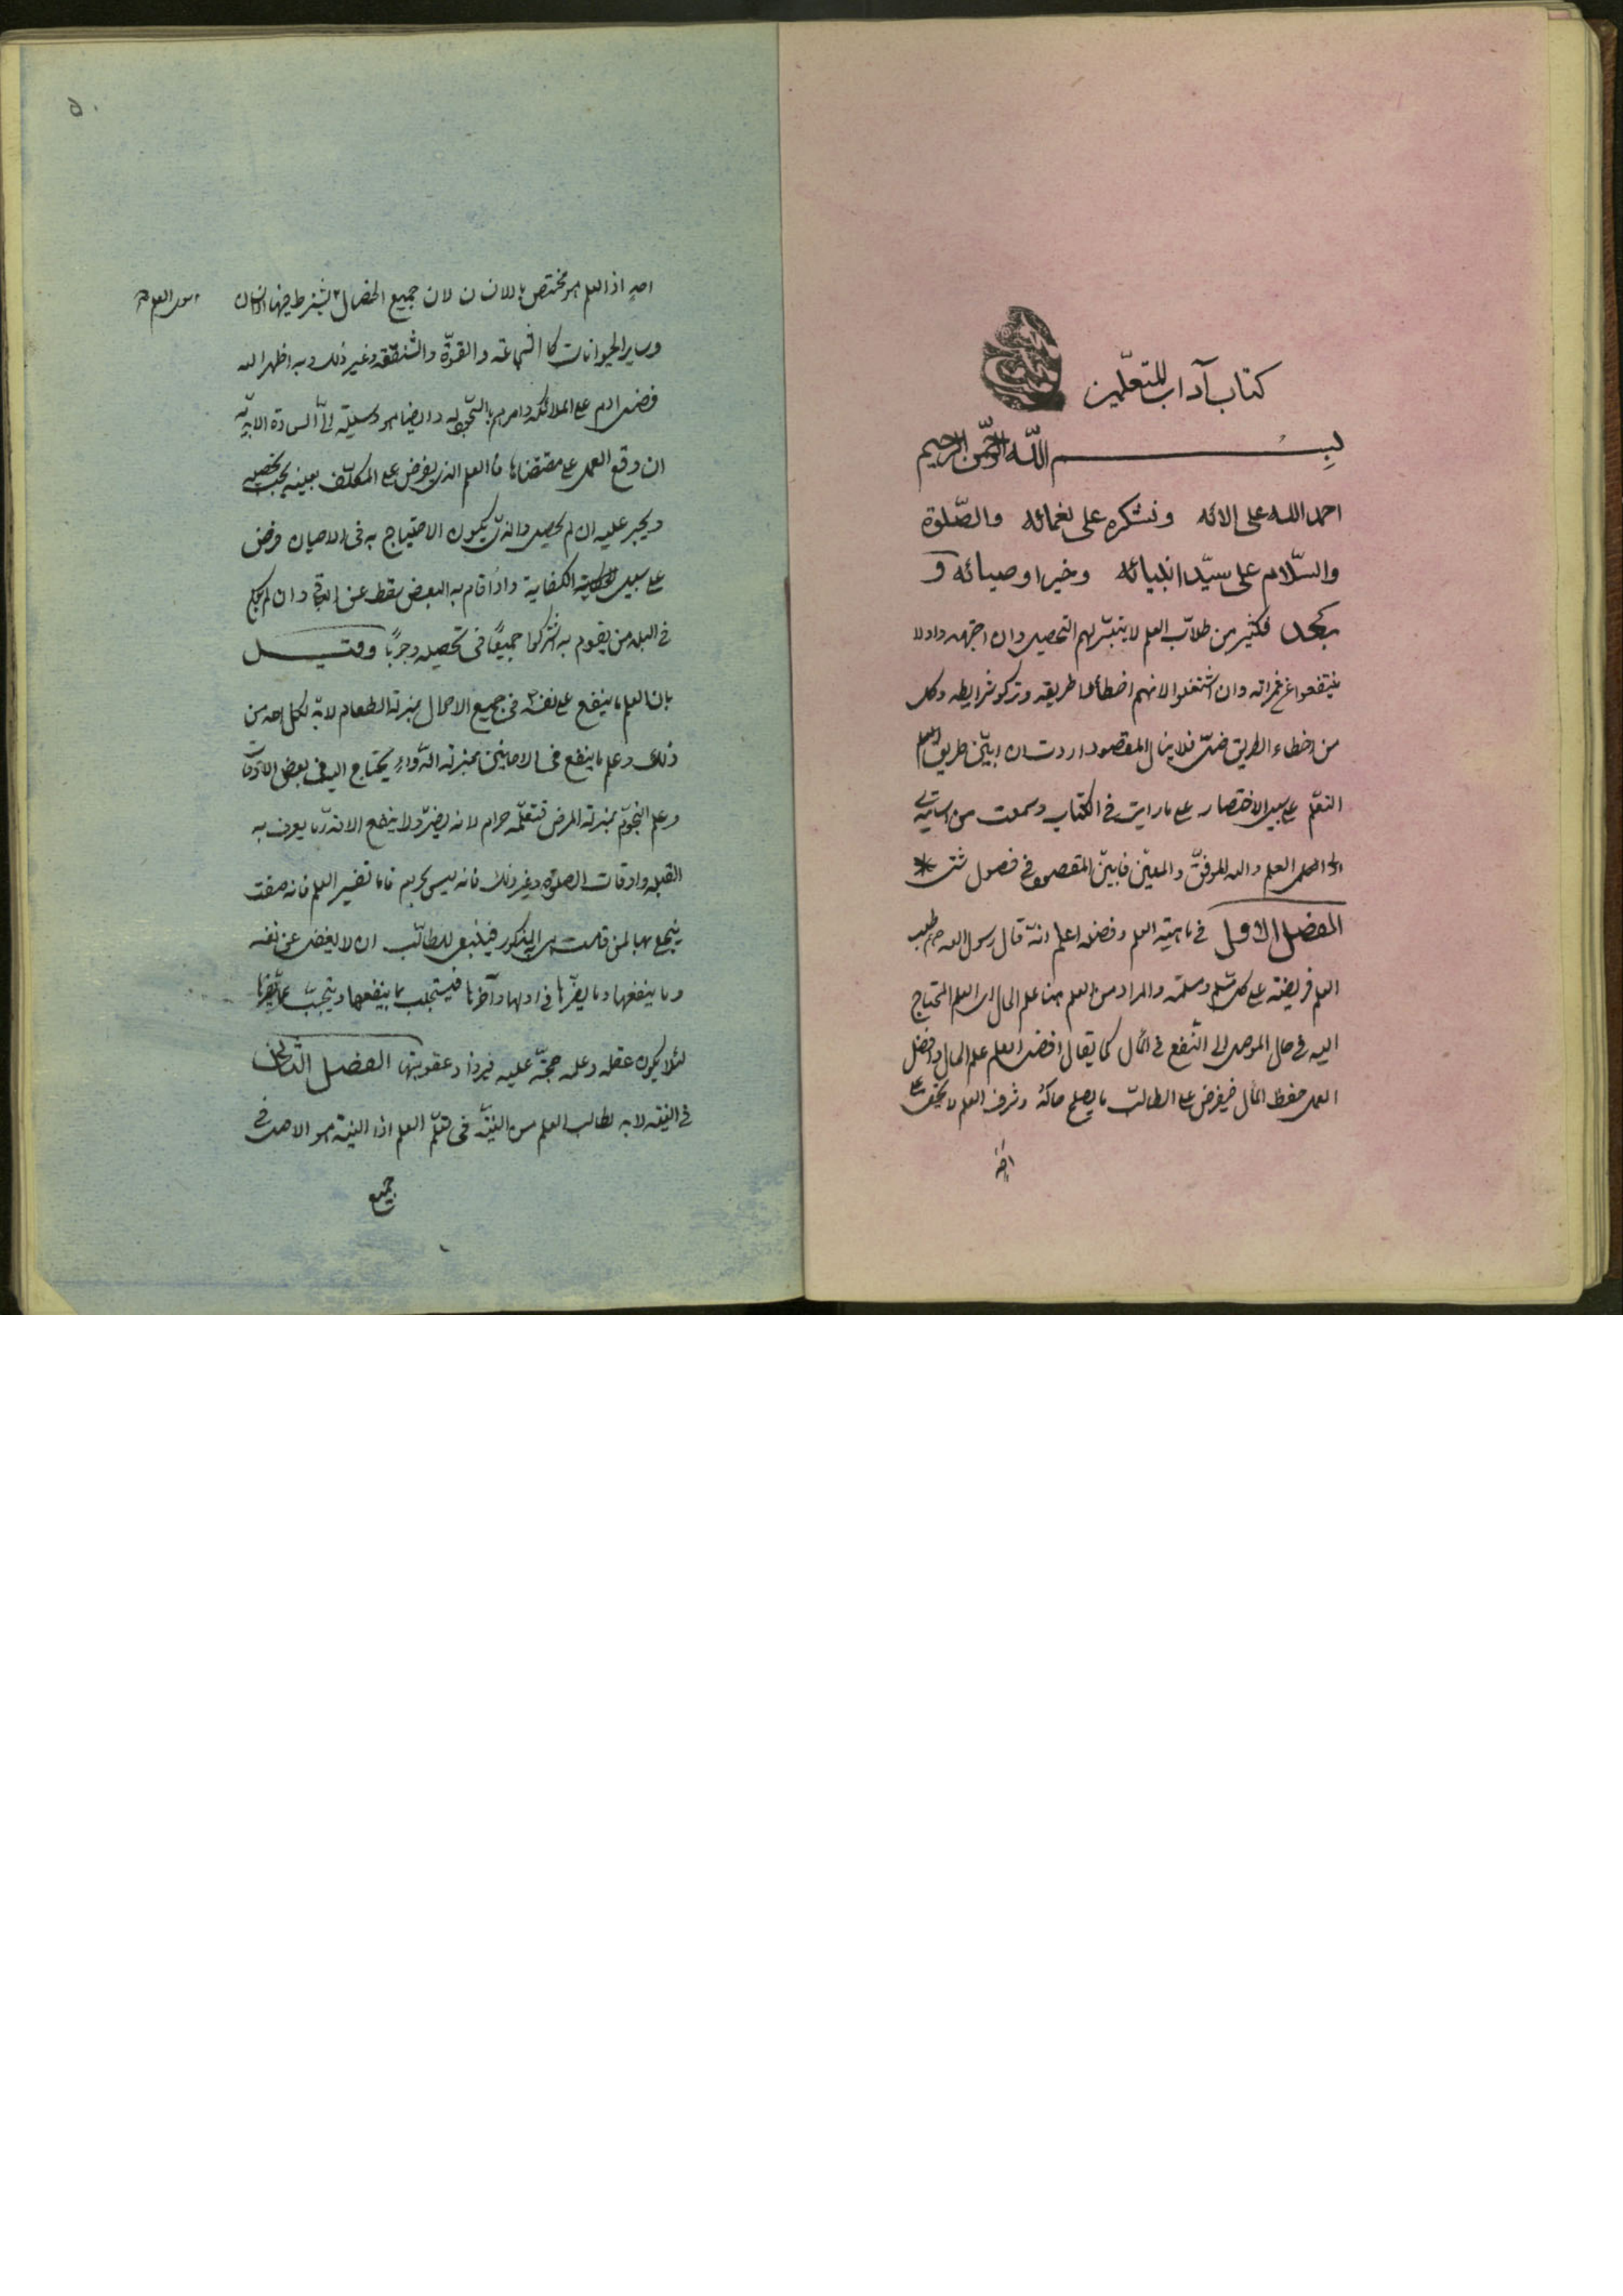 كتاب آداب المتعلّمين
بسم اللّه الرّحمن الرحيم
احمد اللّه على الائه ونشكره على نعمائه والصّلوة
والسّلام على سيّد انبيائه وخير اوصيائه و
بعد فكثير من طلاّب العلم لا يتيسّر لهم التحصيل وان اجتهدوا ولا
ينتفعوا من ثمراته وان اشتغلوا لانهم اخطأوا طريقه وتركوا شرايطه وكل
من اخطاء الطريق ضلّ فلا ينال المقصود اردت ان ابيّن طريق
التعلّم على سبيل الاختصار على ما رايت في الكتاب وسمعت من اساتيدى
اولى العلم واللّه الموفّق والمعيّن فابيّن المقصود في فصول شتى *
الفصل الاول في ماهيّة العلم وفضله اعلم انّه قال رسول اللّه ص طلب
العلم فريضة على كل مسلم ومسلمة والمراد من العلم هنا علم الحال اى العلم المحتاج
اليه في حال الموصل الى النّفع في المآل كما يقال افضل العلم علم الحال وافضل
العمل حفظ المآل فيفرض على الطالب ما يصلح حاله وشرف العلم لا يخفى على
احد
٥٠
احد اذ العلم هو مختص بالانسان لان جميع الخصال يشترط فيها الانسان
سوى العلم
وساير الحيوانات كالشجاعة والقوّة والشفقة وغير ذلك وبه اظهر اللّه
فضل ادم على الملائكة وامرهم بالسّجود له وايضا هو وسيلة الى السعادة الابديّة
ان وقع العمل على مقتضاها فالعلم الذى يفرض على المكلّف بعينه يجب تحصيله
ويجبر عليه ان لم يحصل والذى يكون الاحتياج به في الاحيان فرض
على سبيل الكفاية واذا قام به البعض سقط عن الباقي وان لم يكن
في البلد من يقوم به اشتركوا جميعًا في تحصيله وجوبًا وقيل
بان العلم ما ينفع على نفسه في جميع الاحوال بمنزلة الطعام لابدّ لكل احد من
ذلك وعلم ما ينفع في الاحايين بمنزلة الدّواء يحتاج اليه في بعض الاوقات
وعلم النجوم بمنزلة المرض فتعلّمه حرام لانه يضرّ ولا ينفع الا قدر ما يعرف به
القبلة واوقات الصلوة وغير ذلك فانه ليس بحرام فاما تفسير العلم فانه صفت
ينجلى بها لمن قامت به المذكور فينبغي للطالب ان لا يغفل عن نفسه
وما ينفعها وما يضرّها في اولها وآخرها فيستجلب بما ينفعها ويتجنّب عمّا يضرها
لئلا يكون عقله وعلمه حجّة عليه فيزداد عقوبتها الفصل الثانى
في النيّة لابد لطالب العلم من النيّة في تعلّم العلم اذ النيّة هو الاصل في
جميع